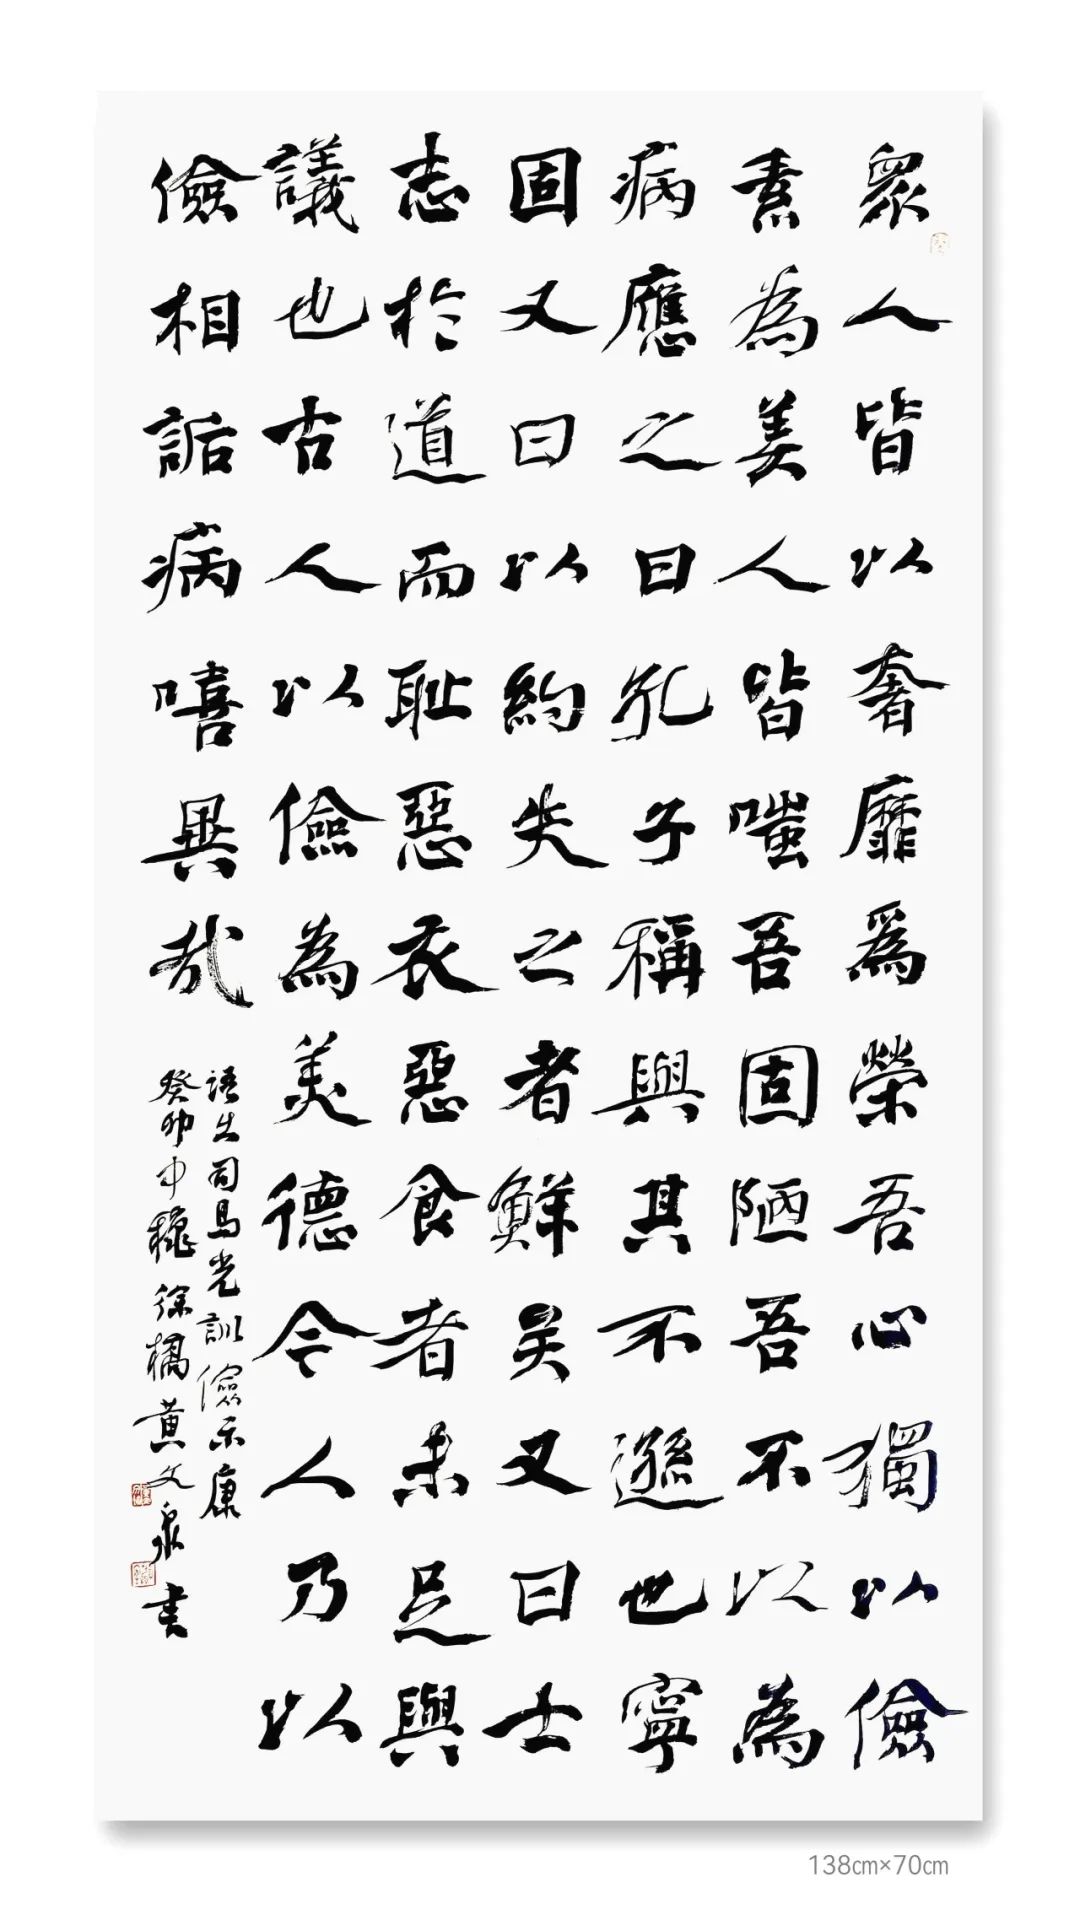 眾人皆以奢靡爲榮吾心獨以儉
素為美人皆嗤吾固陋吾不以為
病應之曰孔子稱與其不遜也寧
固又曰以約失之者鮮矣又曰士
志於道而耻惡衣惡食者未足與
議也古人以儉為美德今人乃以
儉相詬病嘻異哉
語出司馬光訓儉示康
癸卯中穐徐橘黃文泉書
138㎝×70㎝